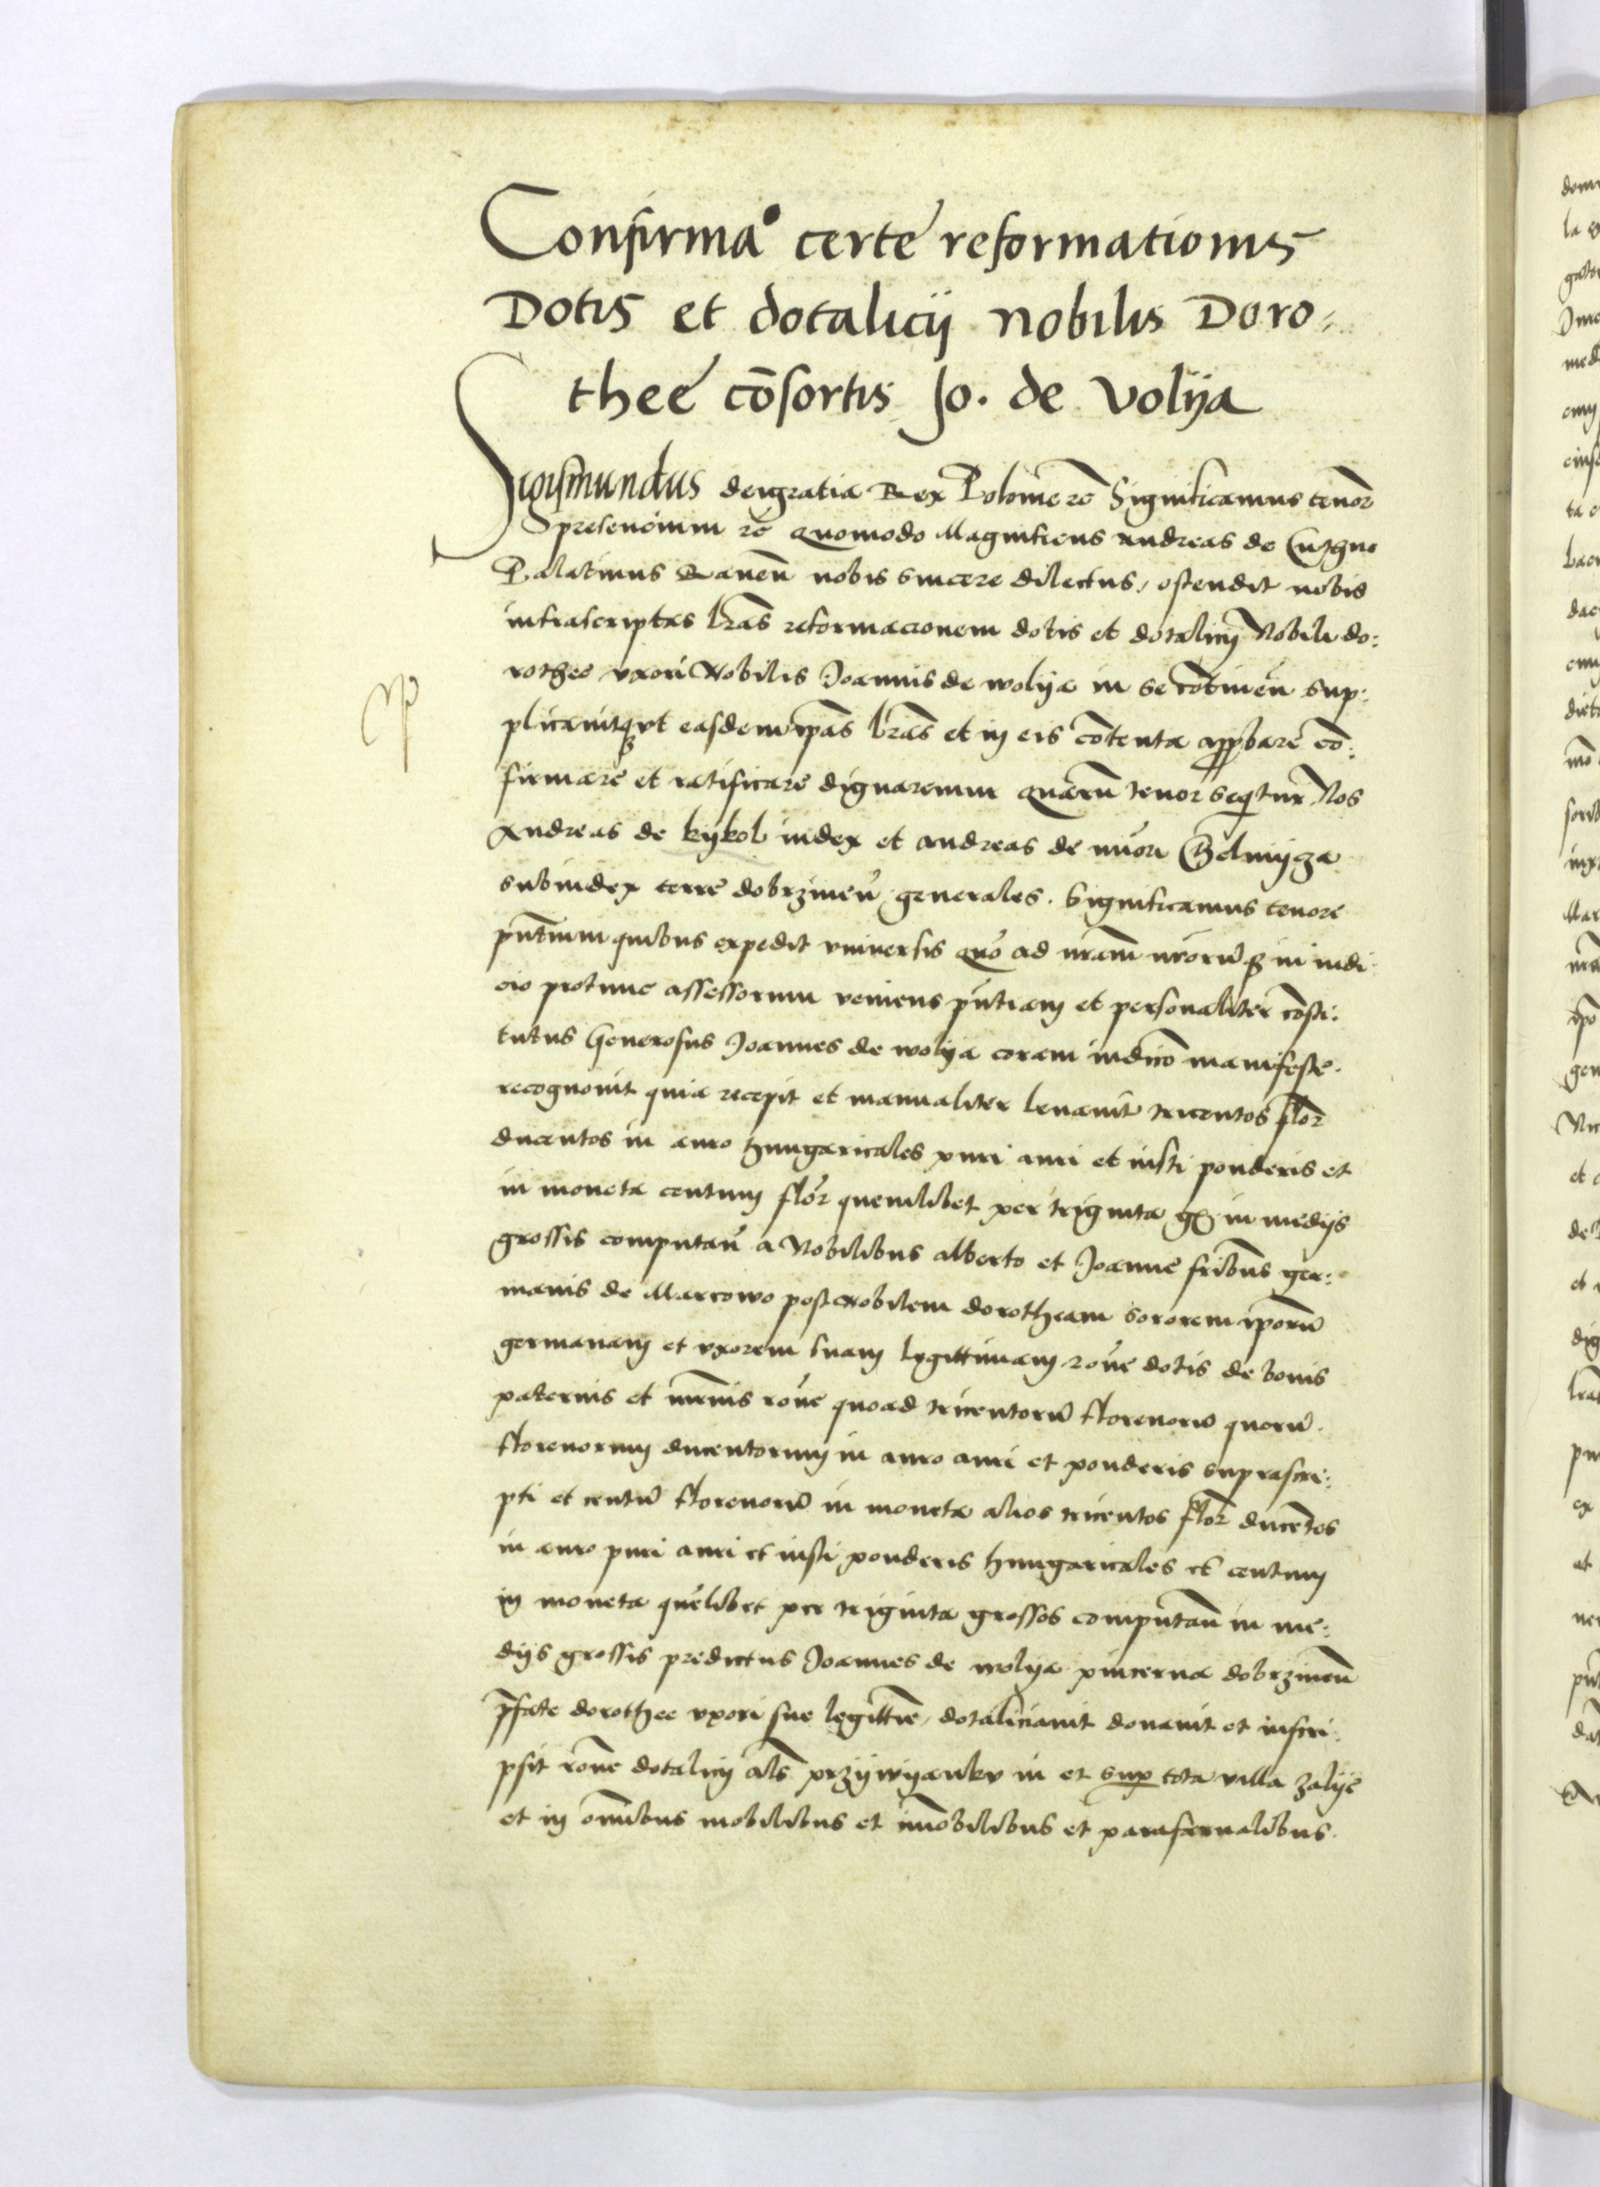 Confirma° certe reformationis
Dotis et dotalicij nobilis Doro:
thee cōsortis Jo. de Volija
Sigismundus dei gratia Rex Polonie rc̄ Significamus tenor̄
presencium rc̄ Quomodo Magnificus Andreas de
Palatinus Raven̄ nobis sincere dilectus, ostendit nobis
infrascriptas lr̄as reformacionem dotis et dotalicij Nobili do:
rothee vxori Nobilis Joannis de wolija in se cōtineñ sup:
plicavitq̷ vt easdem ip̄as lr̄as et in eis cōtenta app̱bare cō:
firmare et ratificare dignaremur quarū tenor seqtur Nos
Andreas de kykol iudex et andreas de
subiudex terre dobrzineñ generales. Significamus tenore
pn̄tium quibus expedit vniversis quō ad nr̄am nr̄orūq̷ in iudi
cio protunc assessorum veniens pn̄tiam et personaliter cōsti:
tutus Generosus Joannes de wolija coram iudicio manifeste.
recognovit quia recepit et manualiter levavit tricentos flor̄
ducentos in auro hungaricales puri auri et iusti ponderis et
in moneta centum flor̄ quemlibet per triginta gr̄ in medijs
grossis computañ a Nobilibus alberto et Joanne fribus ger:
manis de Marcowo post Nobilem dorotheam sororem ip̄orū
germanam et vxorem suam legittimam rōne dotis de bonis
paternis et mr̄nis rōne quoad tricentorū florenorū quorū.
florenorum ducentorum in auro auri et ponderis suprascri:
pti et centū florenorū in moneta alios tricentos flor̄ ducētos
in auro puri auri et iusti ponderis hungaricales et centum
in moneta quēlibet per triginta grossos computañ in me:
dijs grossis predictus Joannes de wolija pincerna dobrzineñ
p̄fate dorothee vxori sue legittīe, dotaliciavit donavit et inscri
psit rōne dotalicij al̄s przijwijanku in et sup̱ tota villa zalije
et in om̄ibus mobilibus et imobilibus et parafernalibus.